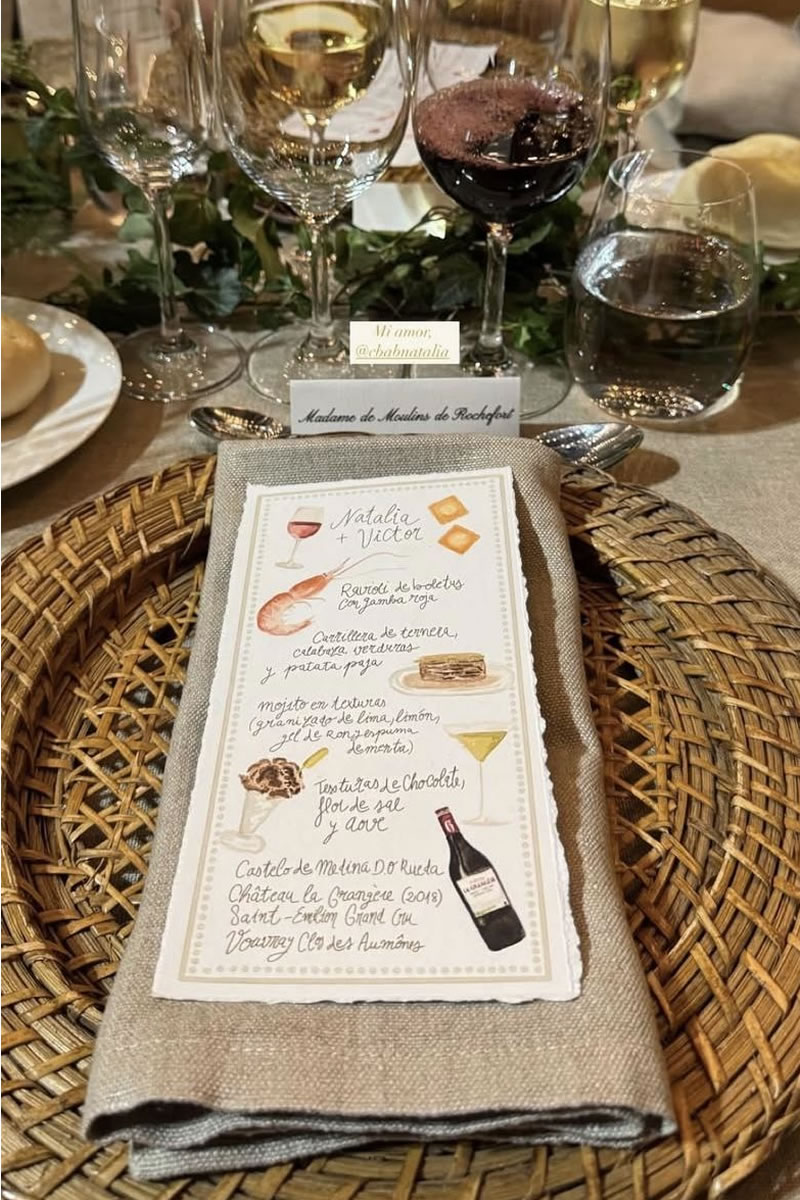 Mi amor,
@chabnatalia
Madame de Moulins de Rochefort
Natalia
+ Victor
Ravioli de boletus
con gamba roja
Carrillera de ternera,
calabaza, verduras
y patata paja
Mojito en texturas
(granizado de lima, limón,
gel de ron, espuma
de menta)
Texturas de Chocolate,
flor de sal
y aove
Castelo de Medina D.O Rueda
Château la Grangère (2018)
Saint-Emilion Grand Cru
Vouvray Clos des Aumônes